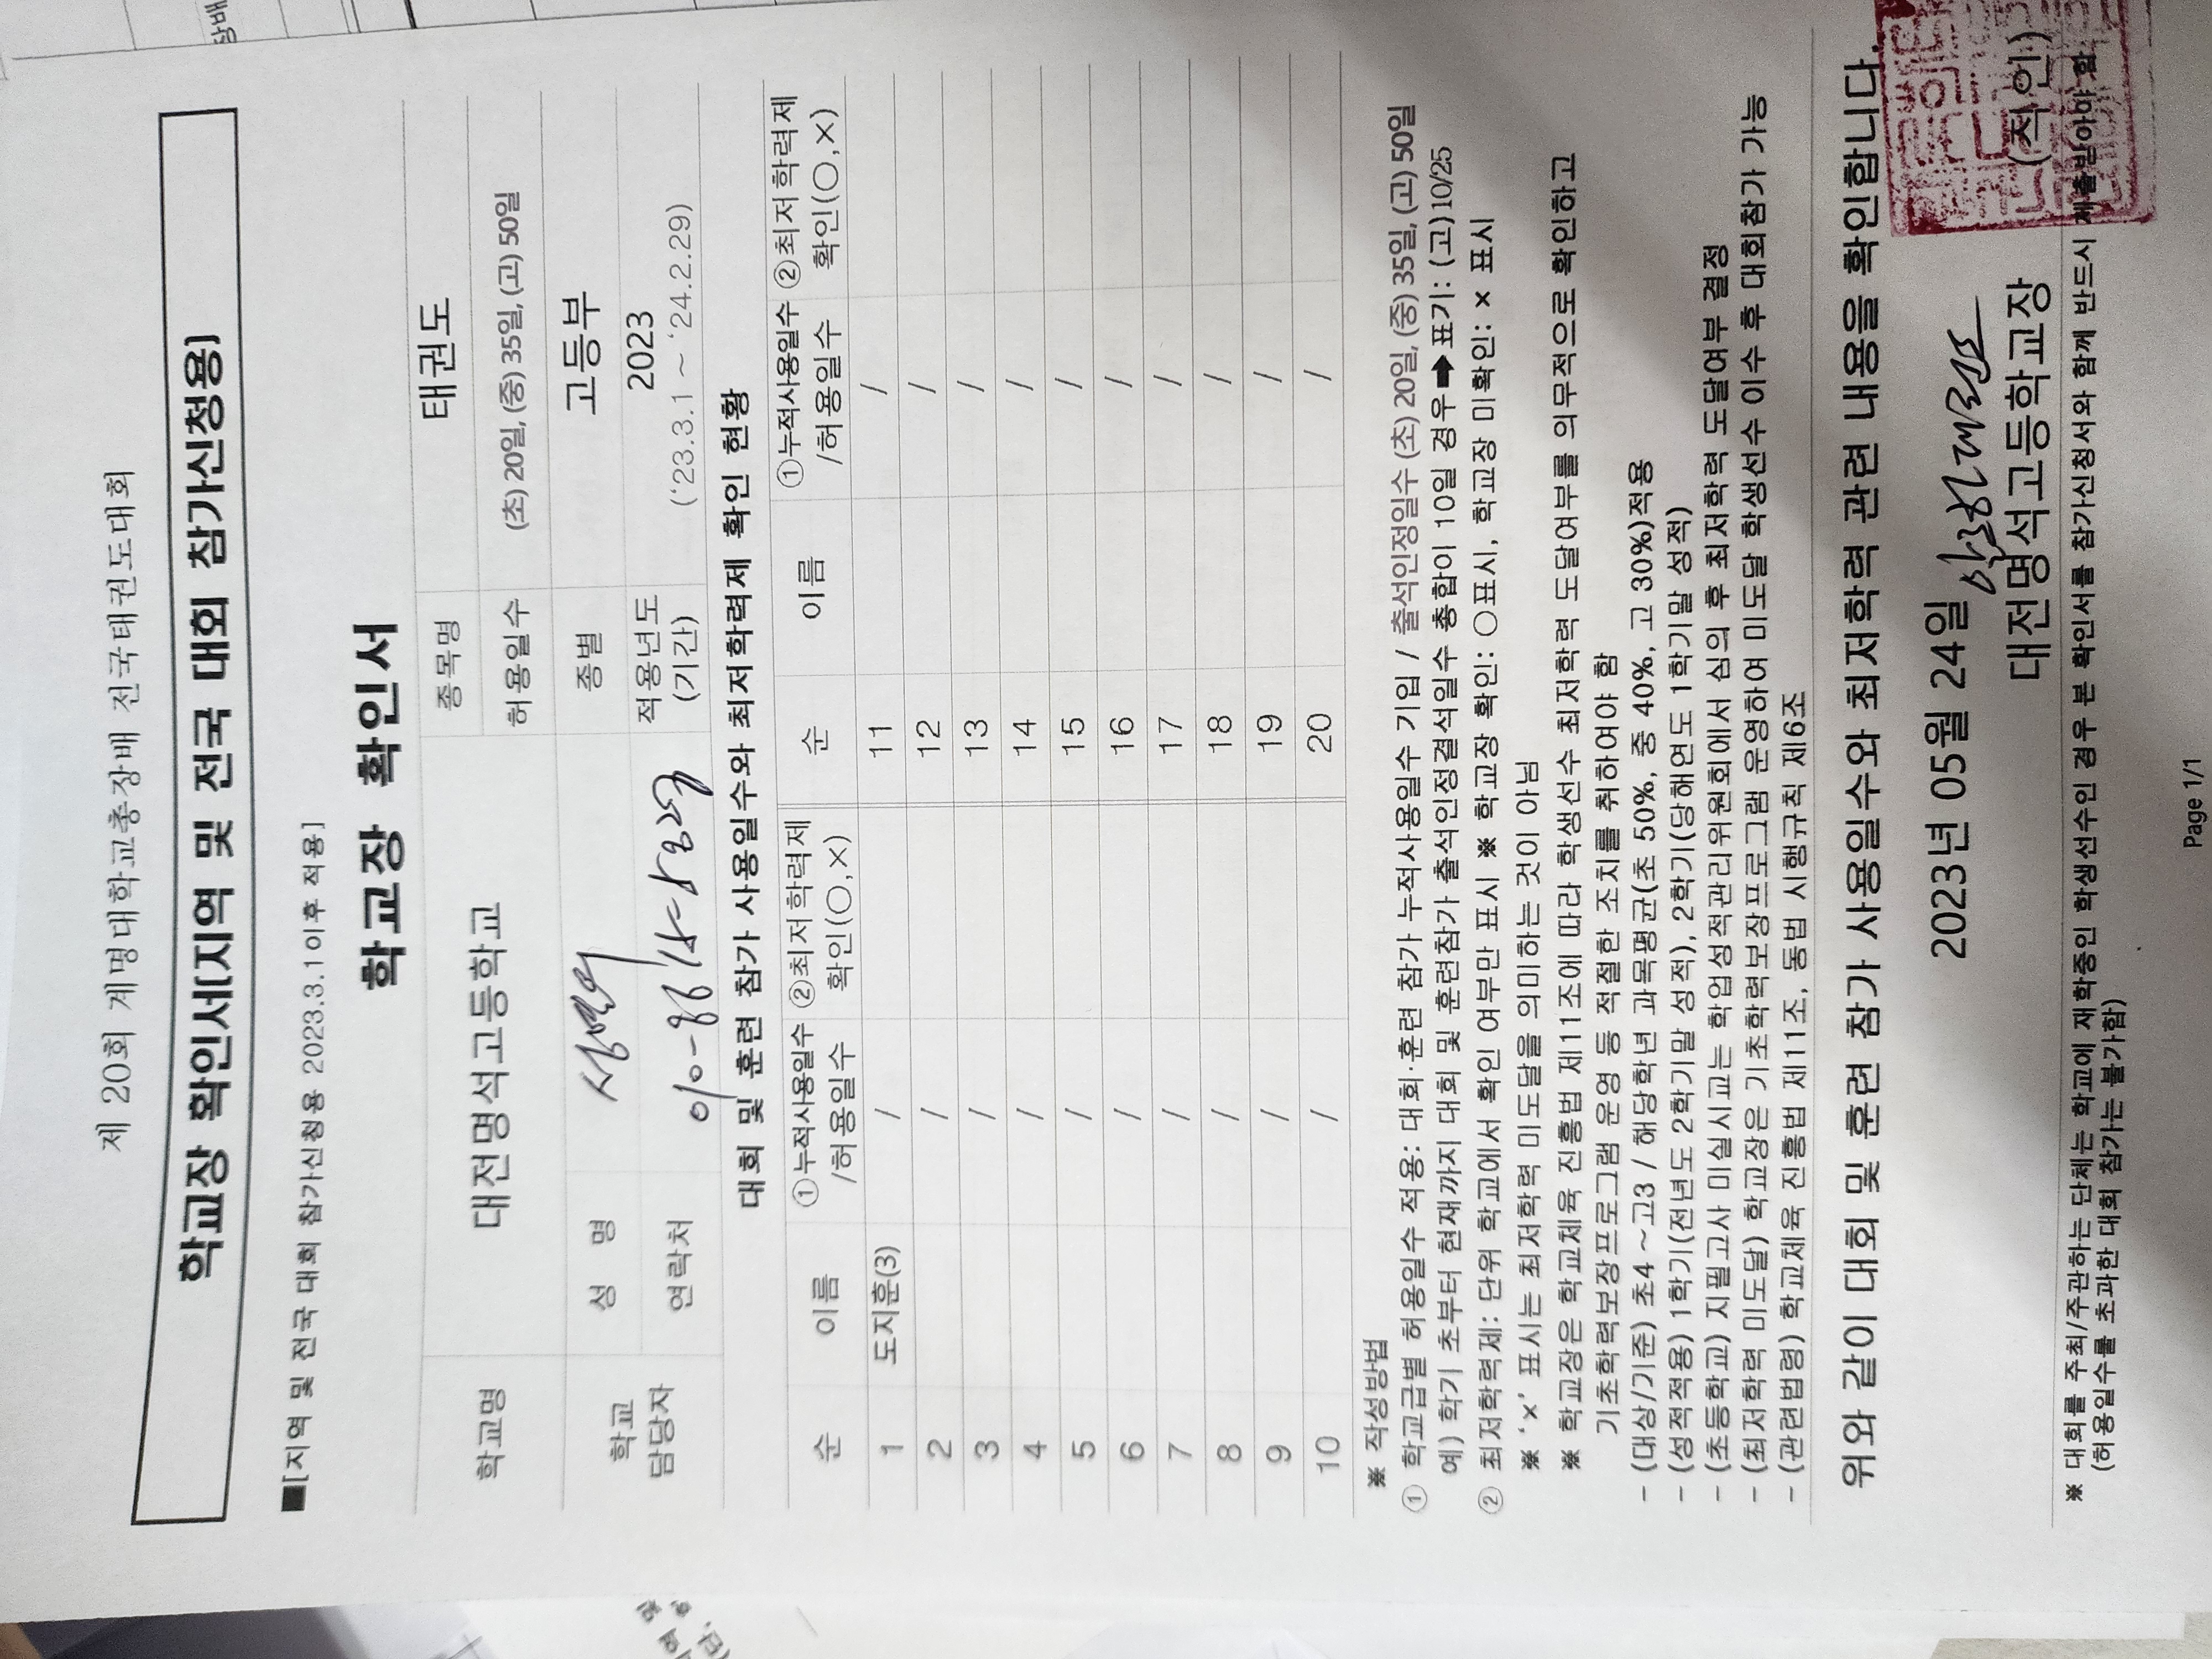 제 20회 계명대학교총장배 전국태권도대회
학교장 확인서[지역 및 전국 대회 참가신청용]
■[지역 및 전국 대회 참가신청용 2023.3.1이후 적용]
학교장 확인서
학교명 대전명석고등학교 종목명 태권도
허용일수 (초) 20일, (중) 35일, (고) 50일
학교 담당자 성 명 종별 고등부
연락처 적용년도 (기간) 2023 ('23.3.1 ~ '24.2.29)
대회 및 훈련 참가 사용일수와 최저학력제 확인 현황
순 이름 ①누적사용일수 /허용일수 ②최저학력제 확인(○,×) 순 이름 ①누적사용일수 /허용일수 ②최저학력제 확인(○,×)
1 도지훈(3) / 11 /
2 / 12 /
3 / 13 /
4 / 14 /
5 / 15 /
6 / 16 /
7 / 17 /
8 / 18 /
9 / 19 /
10 / 20 /
※ 작성방법
① 학교급별 허용일수 적용: 대회·훈련 참가 누적사용일수 기입 / 출석인정일수 (초) 20일, (중) 35일, (고) 50일
예) 학기 초부터 현재까지 대회 및 훈련참가 출석인정결석일수 총합이 10일 경우➡표기: (고)10/25
② 최저학력제: 단위 학교에서 확인 여부만 표시 ※ 학교장 확인: ○표시, 학교장 미확인: × 표시
※ '×' 표시는 최저학력 미도달을 의미하는 것이 아님
※ 학교장은 학교체육 진흥법 제11조에 따라 학생선수 최저학력 도달여부를 의무적으로 확인하고
기초학력보장프로그램 운영 등 적절한 조치를 취하여야 함
- (대상/기준) 초4 ~고3 / 해당학년 과목평균(초 50%, 중 40%, 고 30%)적용
- (성적적용) 1학기(전년도 2학기말 성적), 2학기(당해연도 1학기말 성적)
- (초등학교) 지필고사 미실시교는 학업성적관리위원회에서 심의 후 최저학력 도달여부 결정
- (최저학력 미도달) 학교장은 기초학력보장프로그램 운영하여 미도달 학생선수 이수 후 대회참가 가능
- (관련법령) 학교체육 진흥법 제11조, 동법 시행규칙 제6조
위와 같이 대회 및 훈련 참가 사용일수와 최저학력 관련 내용을 확인합니다.
2023년 05월 24일
대전명석고등학교장 (직인)
※ 대회를 주최/주관하는 단체는 학교에 재학중인 학생선수인 경우 본 확인서를 참가신청서와 함께 반드시 제출받아야 함.
(허용일수를 초과한 대회 참가는 불가함)
Page 1/1